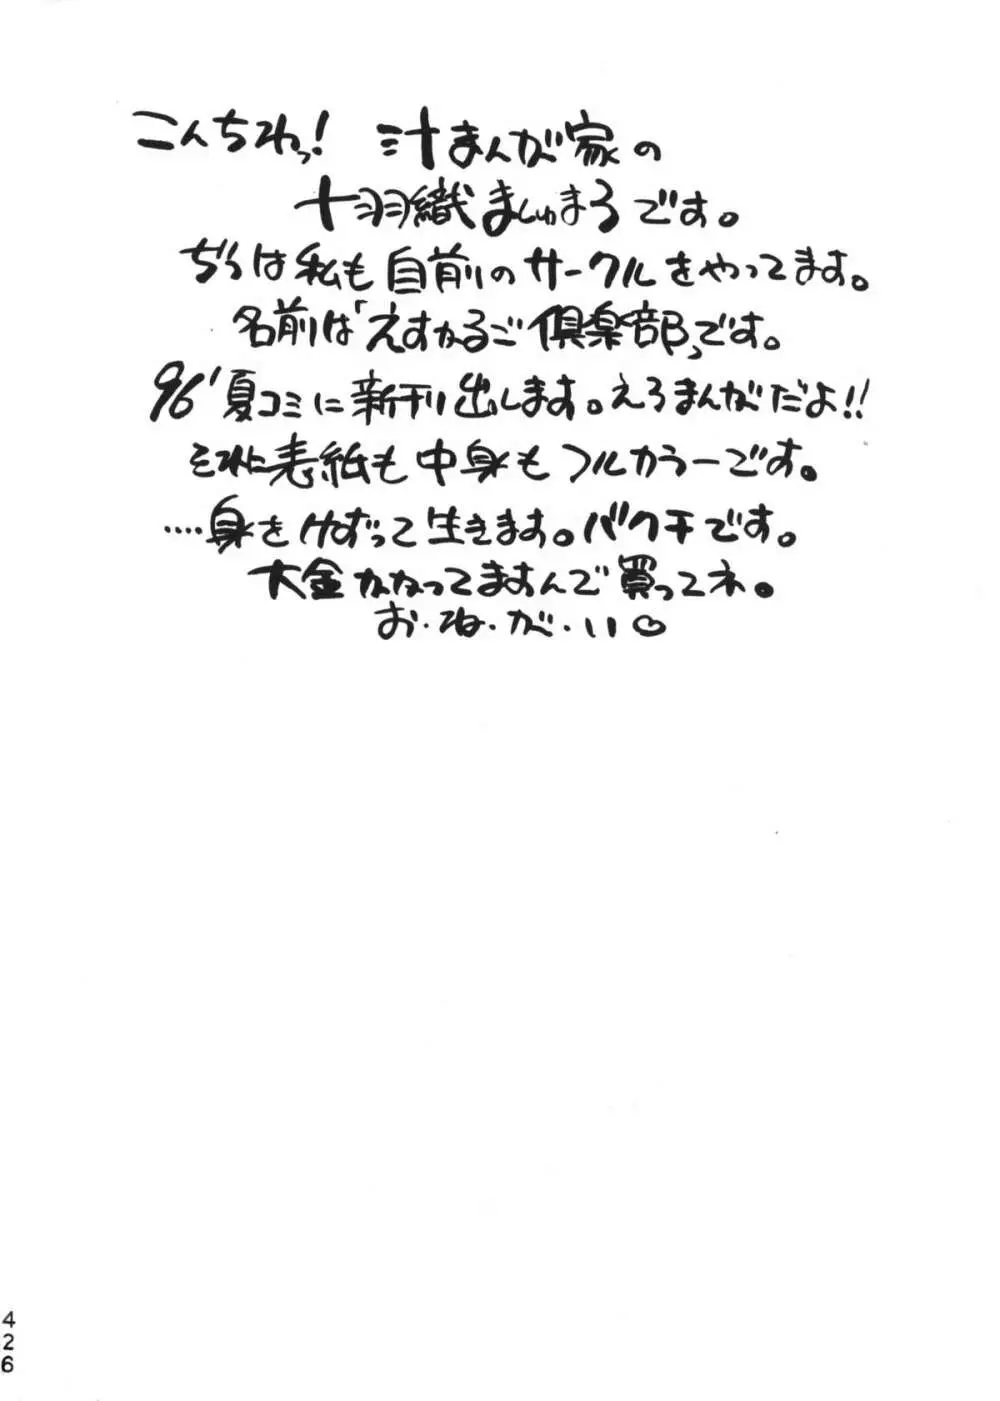 こんちわっ! 汁まんが家の
十羽織ましゅまろです。
ぢつは私も自前のサークルをやってます。
名前は「えすかるご倶楽部」です。
96'夏コミに新刊出します。えろまんがだよ!!
それに表紙も中身もフルカラーです。
....身をけずって生きます。バクチです。
大金かかってますんで買ってネ。
お・ね・が・い♡
426